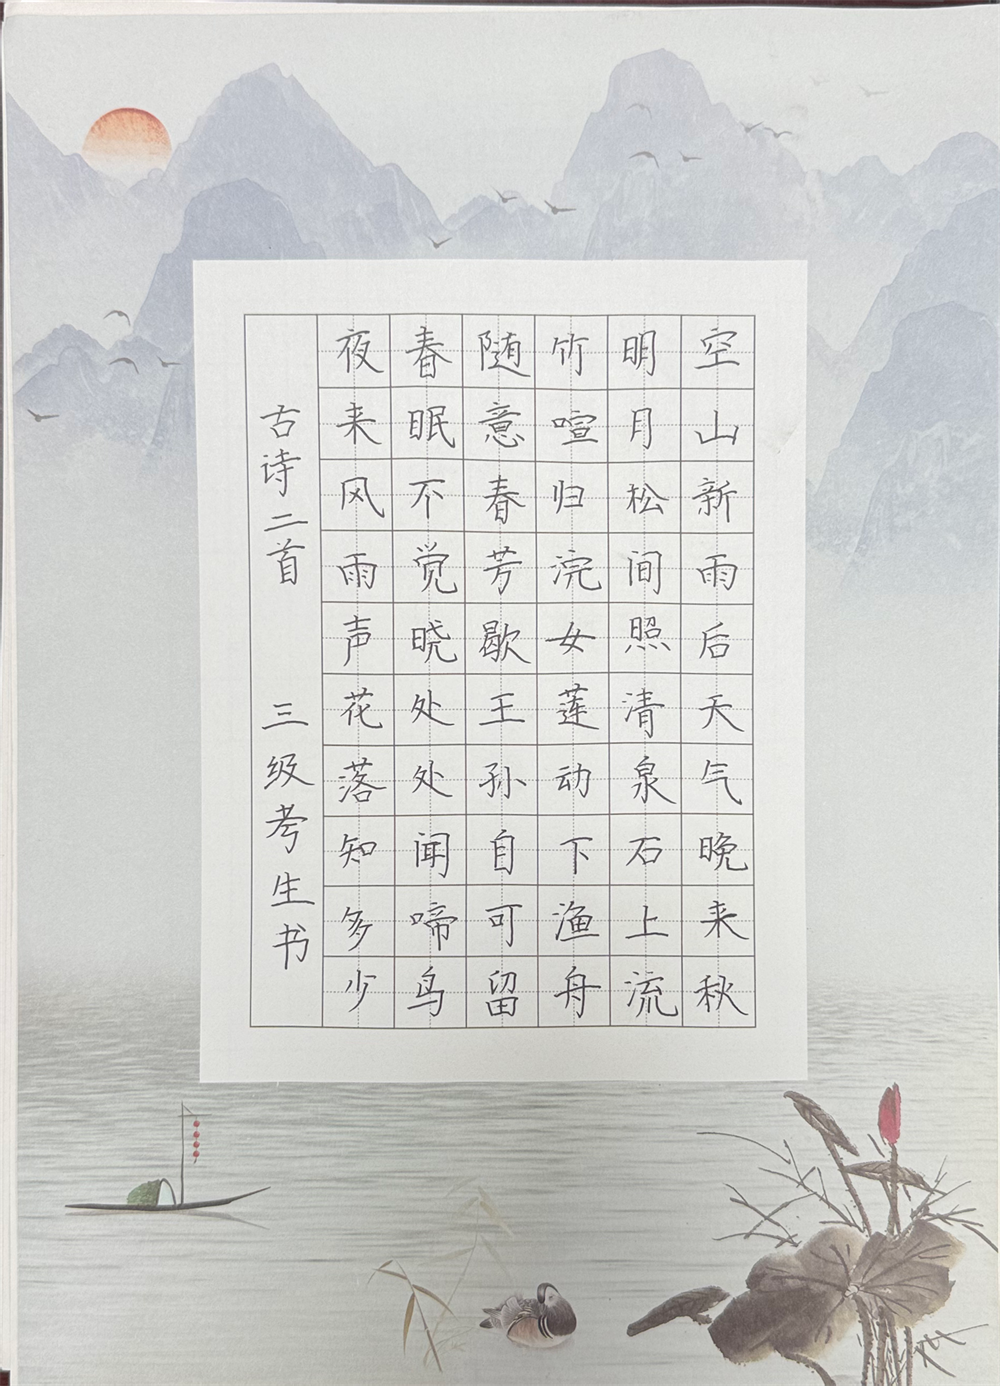 空山新雨后天气晚来秋
明月松间照清泉石上流
竹喧归浣女莲动下渔舟
随意春芳歇王孙自可留
春眠不觉晓处处闻啼鸟
夜来风雨声花落知多少
古诗二首 三级考生书